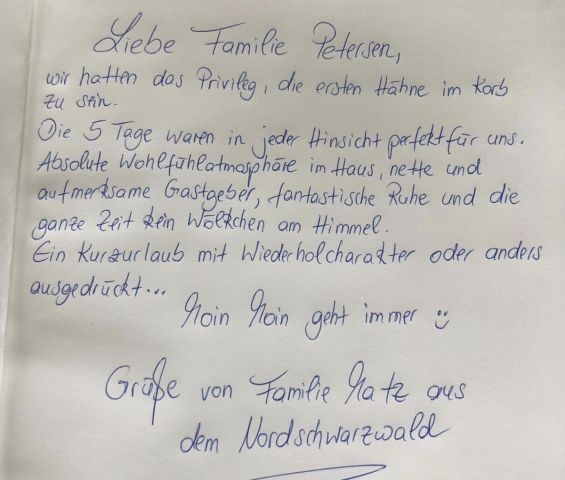 Liebe Familie Petersen,
wir hatten das Privileg, die ersten Hähne im Korb
zu sein.
Die 5 Tage waren in jeder Hinsicht perfekt für uns.
Absolute Wohlfühlatmosphäre im Haus, nette und
aufmerksame Gastgeber, fantastische Ruhe und die
ganze Zeit kein Wölkchen am Himmel.
Ein Kurzurlaub mit Wiederholcharakter oder anders
ausgedrückt...
Moin Moin geht immer ☺
Grüße von Familie Matz aus
dem Nordschwarzwald